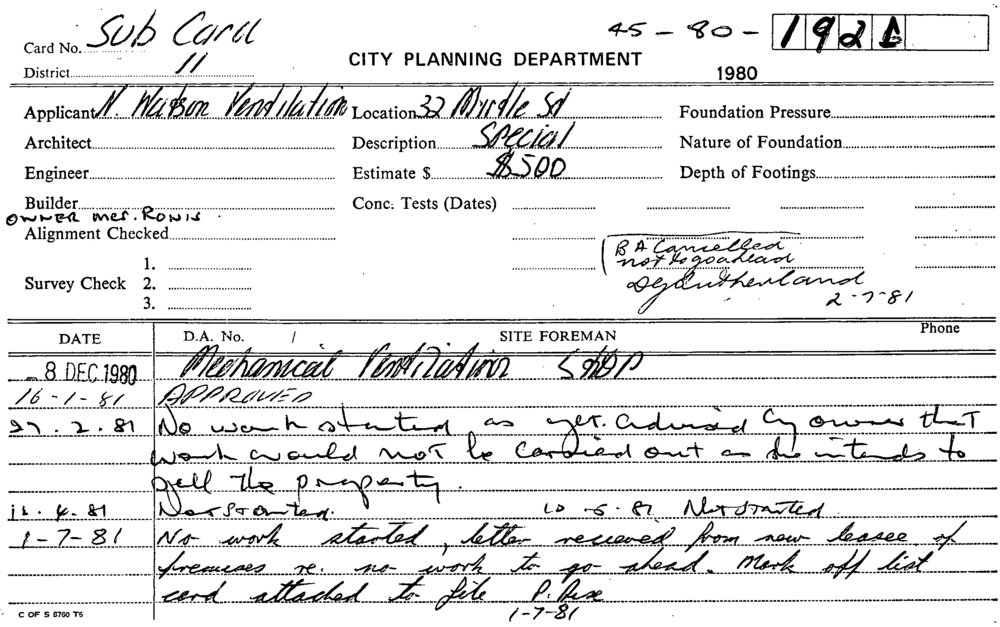 Card No. Sub Card
45 - 80 - 1921
District 11
CITY PLANNING DEPARTMENT
1980
Applicant N. Watson Ventilation Location 32 St Foundation Pressure
Architect Description Special Nature of Foundation
Engineer Estimate $ $500 Depth of Footings
Builder Conc. Tests (Dates)
OWNER Mrs. RONIS
Alignment Checked
BA Cancelled
not to go ahead
Survey Check 1.
2.
3.
DGSutherland
2-7-81
DATE D.A. No. / SITE FOREMAN Phone
- 8 DEC 1980 Mechanical Ventilation Shop
16-1-81 APPROVED
27.2.81 No work started as yet. advised by owner that
work would not be carried out as she intends to
sell the property.
4.81 Not Started. 10-5-81 Not Started
1-7-81 No work started, letter recieved from new leasee of
premises re. no work to go ahead. Mark off list
card attached to file P.
1-7-81
C OF S 6760 T6